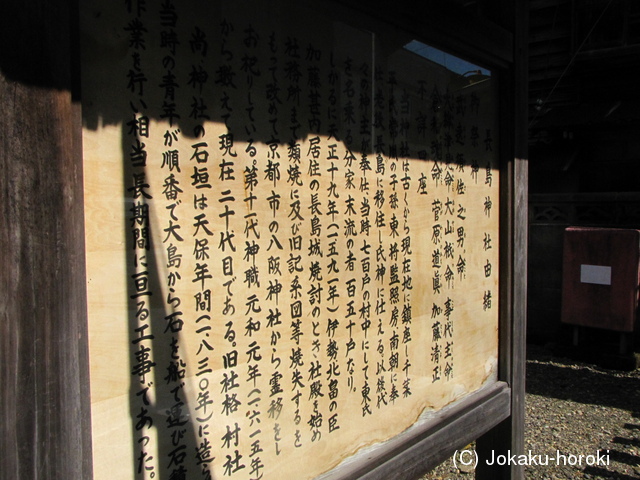 長島神社由緒
御祭神
建速須佐之男命
大山祇命 事代主命
菅原道真 加藤清正
不詳 座
当神社は古くから現在地に鎮座し千葉
の子孫東将監照房南朝に奉
長島に移住し氏神に仕える。以後代
神主を奉仕、当時七百戸の村中にして東氏
を名乗 分家末流の者百五十戸なり。
しかるに天正十九年(一五九一年)伊勢北畠の臣
加藤甚内居住の長島城焼討のとき社殿を始め
社務所まで類焼に及び旧記系図等焼失するを
もって改めて京都市の八阪神社から霊移をし
お祀りしている。第十一代神職元和元年(一六一五年)
から数えて現在二十代目である。旧社格村社
尚、神社の石垣は天保年間(一八三〇年)に造ら
当時の青年が順番で大島から石を船で運び石積
作業を行い相当長期間に亘る工事であった。
(C) Jokaku-horoki